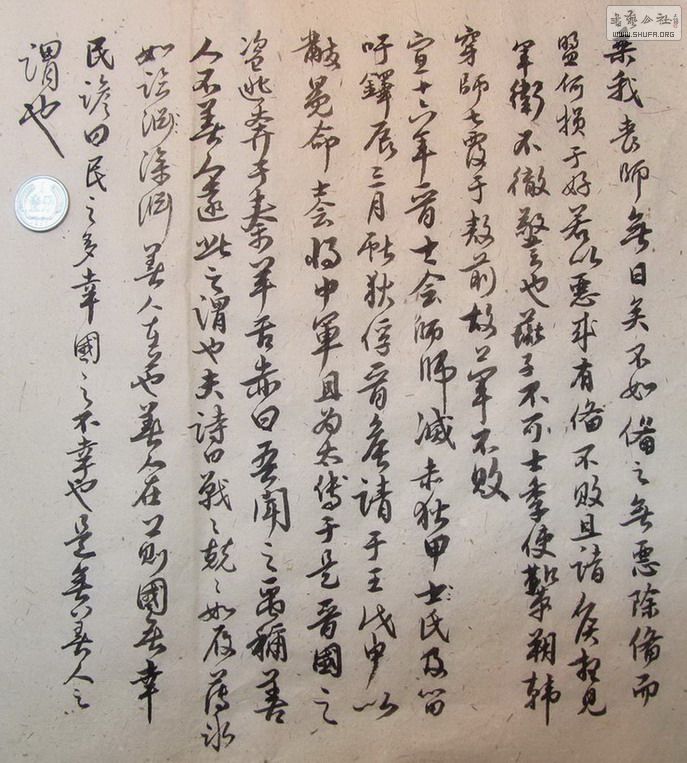 乘我喪師無日矣不如備之無惡除備而
盟何損于好若以惡來有備不敗且諸侯相見
軍衛不徹警也彘子不可士季使鞏朔韓
穿帥七覆于敖前故上軍不敗
宣十六年晉士會帥師滅赤狄甲士氏及留
吁鐸辰三月獻狄俘晉侯請于王戊申以
黻冕命士會將中軍且为太傅于是晉國之
盜逃奔于秦羊舌赤曰吾聞之禹稱善
人不善人遠此之謂也夫詩曰戰々兢々如履薄冰
如臨淵深淵善人在也善人在上則國無幸
民諺曰民之多幸國之不幸也是無善人之
謂也
書法公社
WWW.SHUFA.ORG